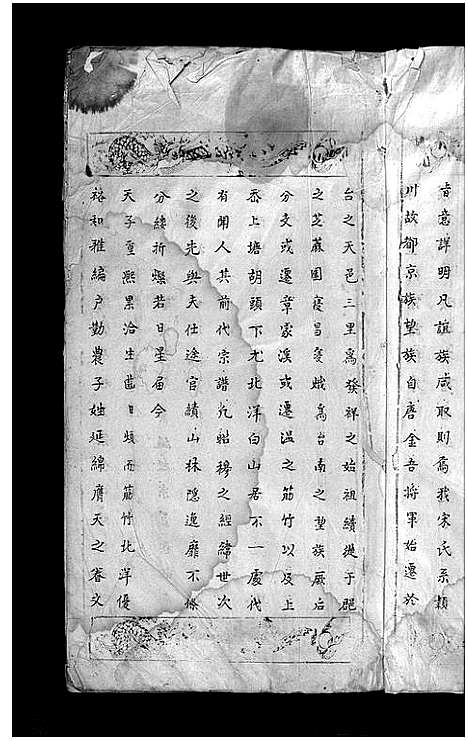 旨意詳明凡誼族咸取則焉我宋氏系類
川故都京族望族自唐金吾將軍始遷於
台之天邑三里為發祥之始祖續遷于邑
之芝蔴園寖昌寖熾為台南之望族厥后
分支或遷章家溪或遷溫之筋竹以及上
岙上塘胡頭下尤北洋白山居不一處代
有聞人其前代宗譜凡昭穆之經緯世次
之後先與夫仕途官績山林隱逸靡不條
分縷折燦若日星届今
天子重熙累洽生齒日煩而筋竹北洋優
裕和雅編戶勤農子姓延綿膺天之眷文